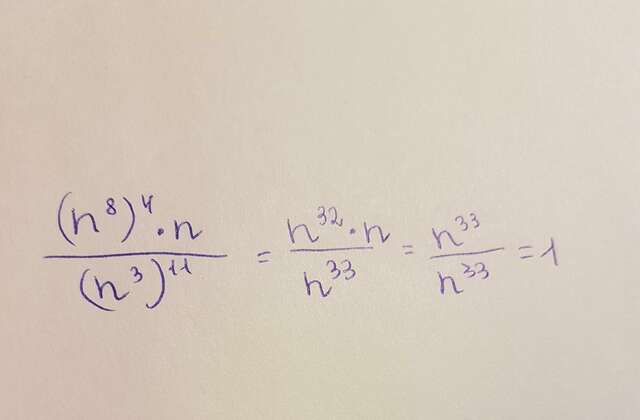 (n⁸)⁴·n / (n³)¹¹ = n³²·n / n³³ = n³³ / n³³ = 1